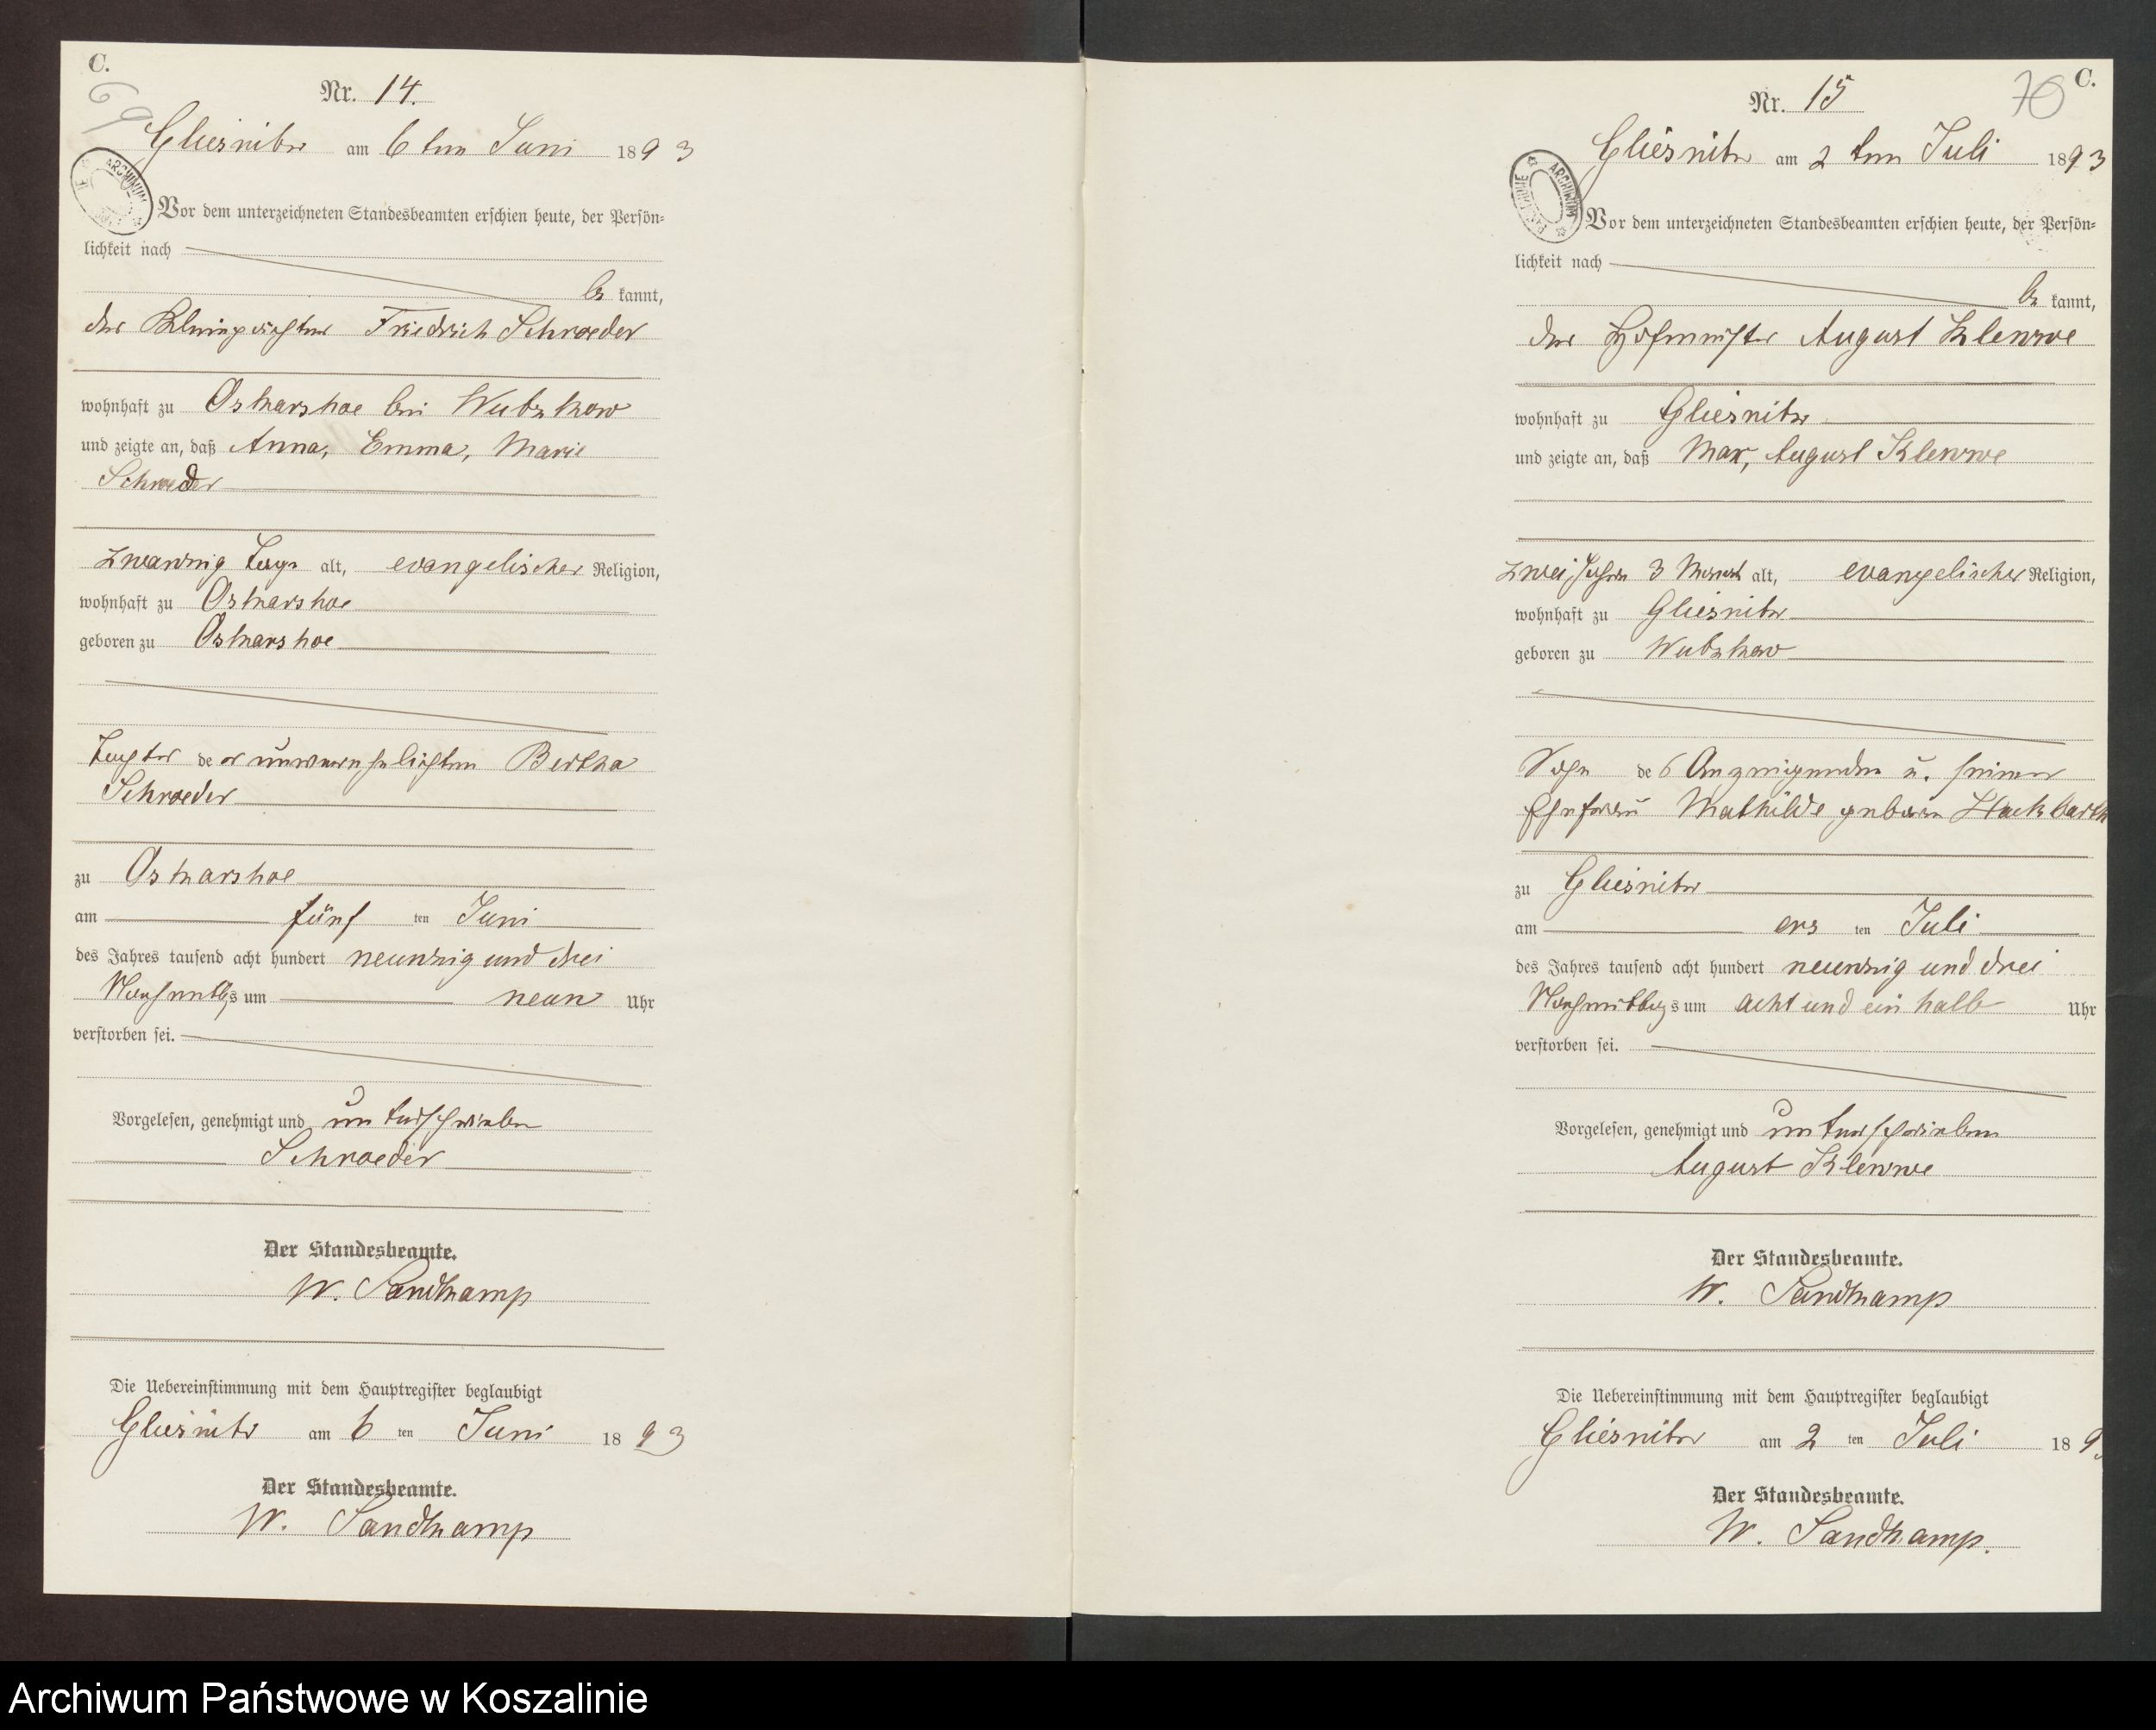 C.
69
Nr. 14.
Gliesnitz am 6 ten Juni 1893
ARCHIWUM
Vor dem unterzeichneten Standesbeamten erschien heute, der Persön-
lichkeit nach
be kannt,
der Kleinpächter Friedrich Schroeder
wohnhaft zu Oskarshoe bei Wutzkow
und zeigte an, daß Anna, Emma, Marie
Schroeder
zwanzig Tage alt, evangelischer Religion,
wohnhaft zu Oskarshoe
geboren zu Oskarshoe
Tochter de er unverehelichten Bertha
Schroeder
zu Oskarshoe
am fünf ten Juni
des Jahres tausend acht hundert neunzig und drei
Nachmittags um neun Uhr
verstorben sei.
Vorgelesen, genehmigt und unterschrieben
Schroeder
Der Standesbeamte.
W. Sandkamp
Die Uebereinstimmung mit dem Hauptregister beglaubigt
Gliesnitz am 6 ten Juni 1893
Der Standesbeamte.
W. Sandkamp
C.
70
Nr. 15
Gliesnitz am 2 ten Juli 1893
ARCHIWUM
Vor dem unterzeichneten Standesbeamten erschien heute, der Persön-
lichkeit nach
be kannt,
der Hofmeister August Klewwe
wohnhaft zu Gliesnitz
und zeigte an, daß Max, August Klewwe
zwei Jahre 3 Monat alt, evangelischer Religion,
wohnhaft zu Gliesnitz
geboren zu Wutzkow
Sohn de s Anzeigenden u. seiner
Ehefrau Mathilde geboren Hackbarth
zu Gliesnitz
am ers ten Juli
des Jahres tausend acht hundert neunzig und drei
Nachmittags um acht und ein halb Uhr
verstorben sei.
Vorgelesen, genehmigt und unterschrieben
August Klewwe
Der Standesbeamte.
W. Sandkamp
Die Uebereinstimmung mit dem Hauptregister beglaubigt
Gliesnitz am 2 ten Juli 189
Der Standesbeamte.
W. Sandkamp.
Archiwum Państwowe w Koszalinie